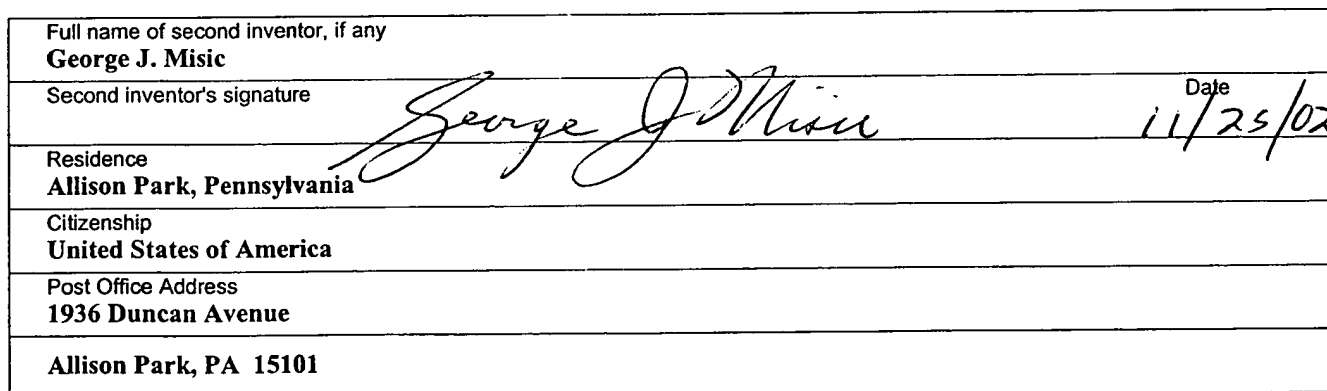 Full name of second inventor, if any
George J. Misic
Second inventor's signature George J Misic Date
11/25/02
Residence
Allison Park, Pennsylvania
Citizenship
United States of America
Post Office Address
1936 Duncan Avenue
Allison Park, PA 15101